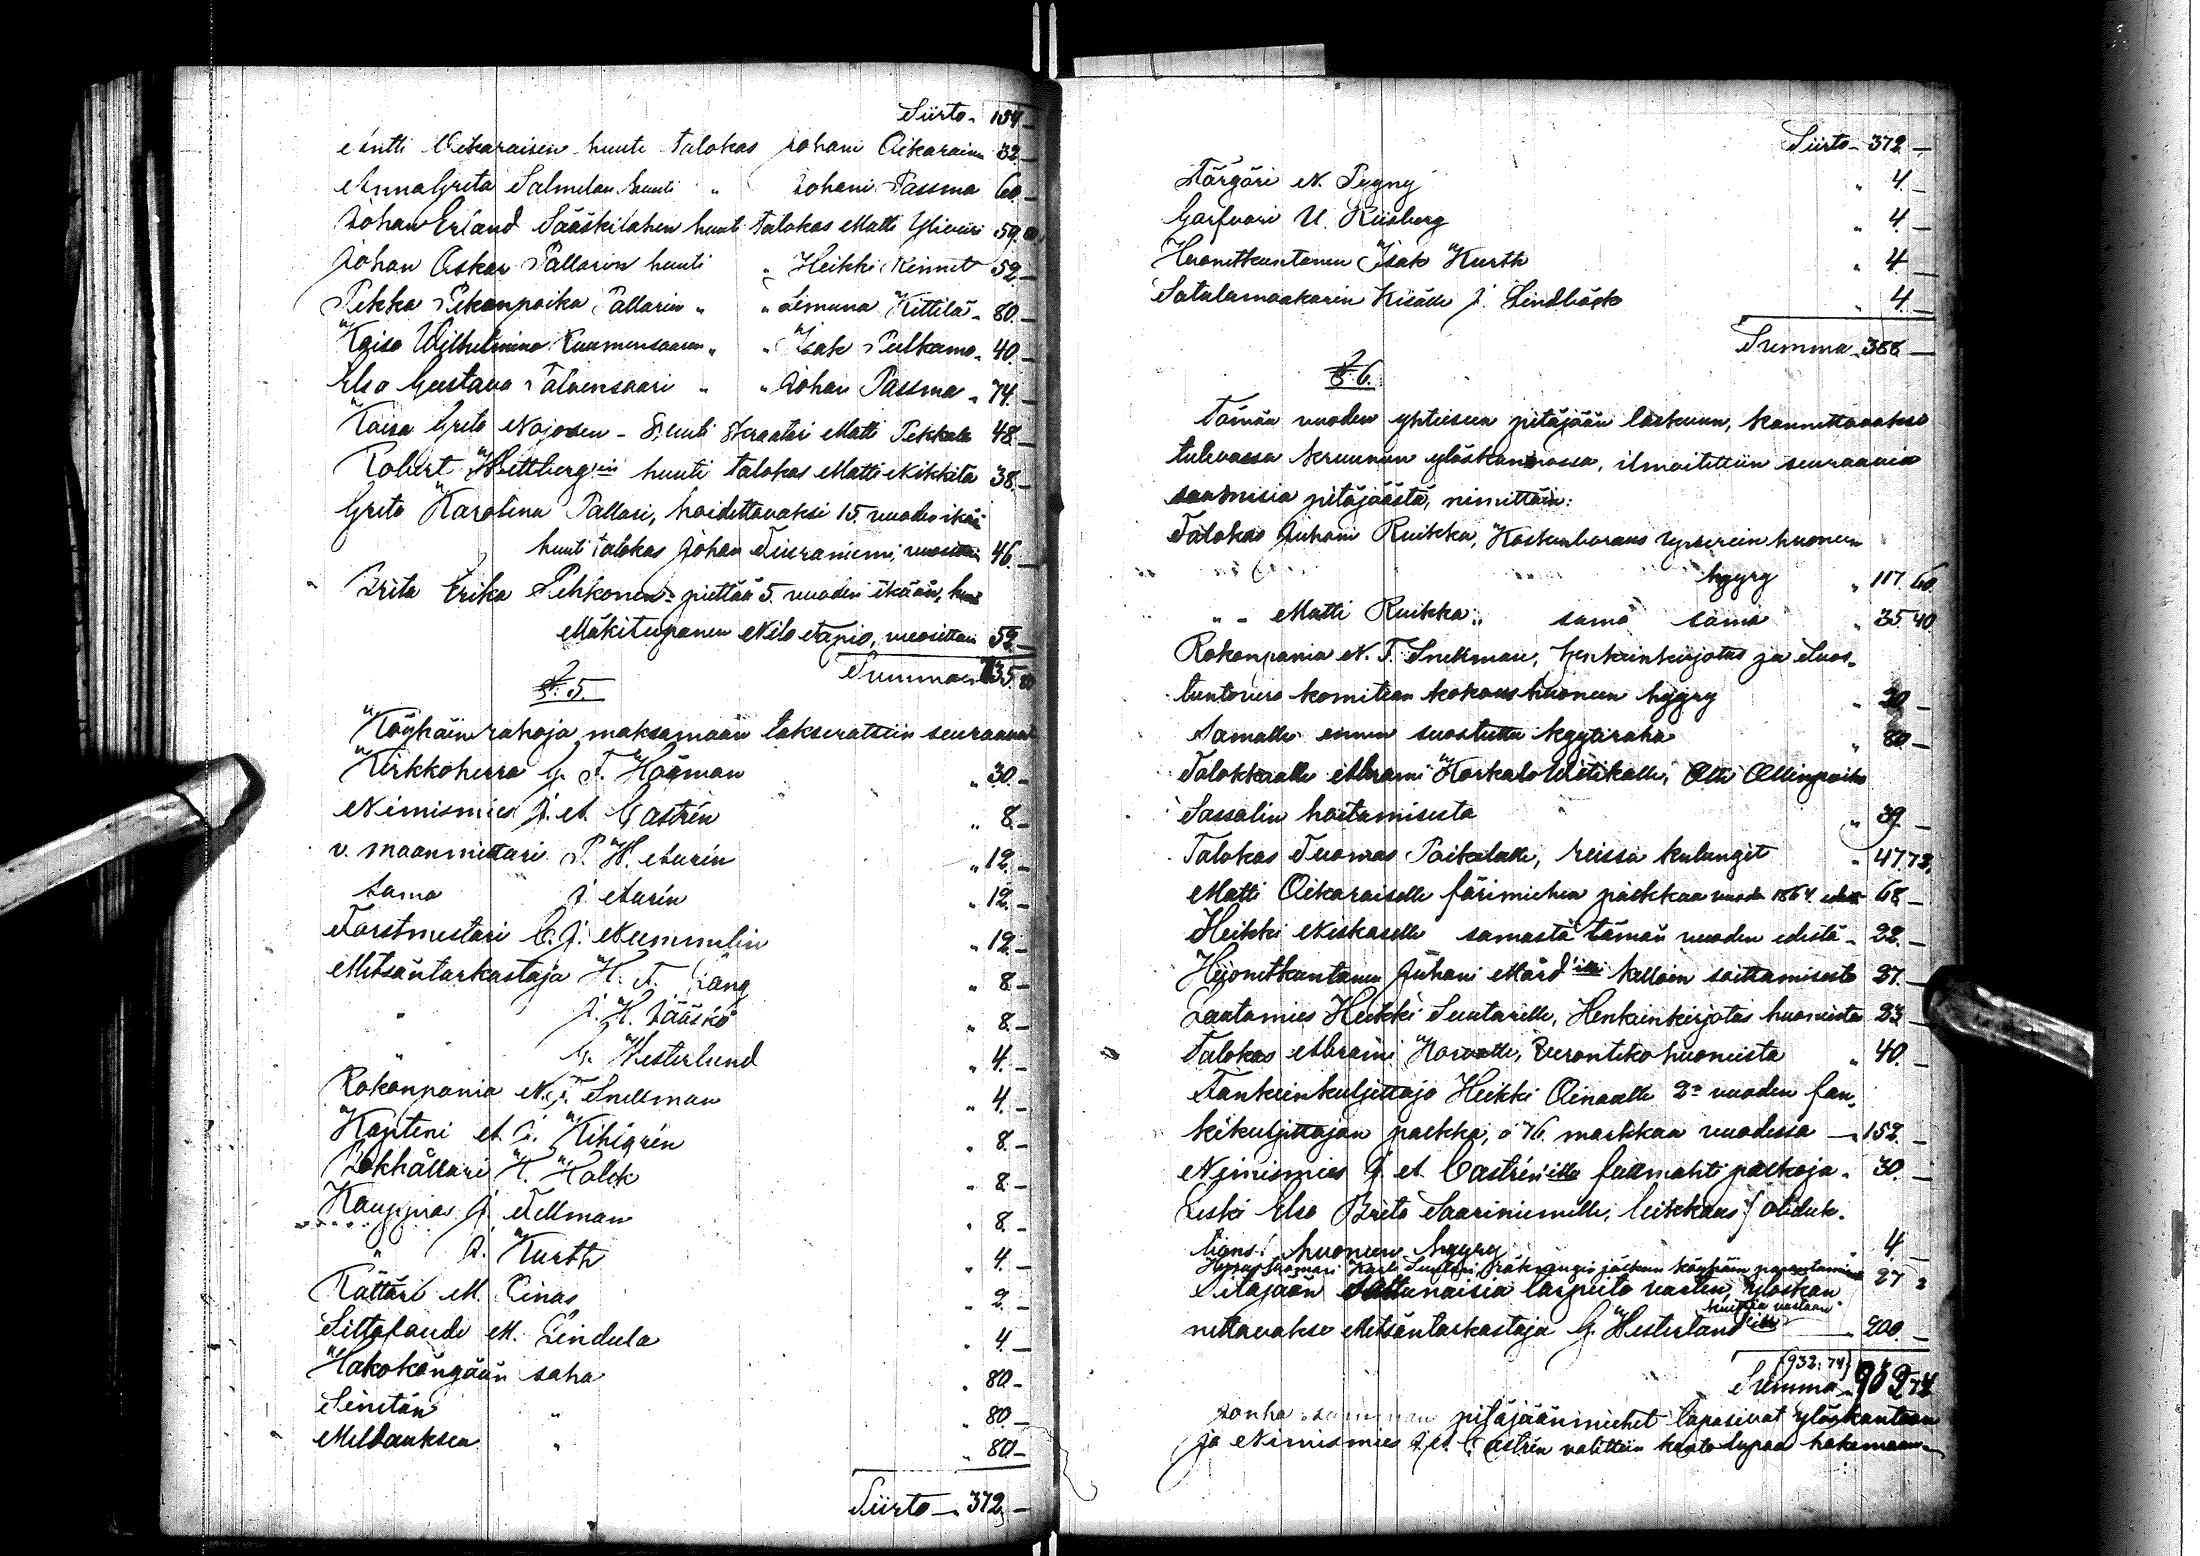 Siirto - 154 -
Antti Oikaraisen huuti talokas Johani Oikarainen 32. -
Anna Greta Salmelan huuti " Johani Passma 60. -
Johan Erland Sääskilahen huuti talokas Matti Ylieuri 59.
Johan Oskar Pallarin huuti " Heikki Kinnet 52 -
Pekka Pekanpoika Pallarin " " Kittilä - 80. -
Kaisa Wilhelmina Kuumensaaren " " Isak Pulkamo - 40. -
Elsa Gustava Palvensaari " " Johan Passma - 74. -
Kaisa Greta Najosen - huuti Kraatari Matti Pekkala 48. -
Robert Wettberg'in huuti talokas Matti Nikkilä 38. -
Greta Karolina Pallari, hoidettavaksi 15. vuoden ikää
huuti talokas Johan Tiuraniemi, vuosittain 46. -
Brita Erika Pehkonen piettää 5. vuoden ikään, huuti
Mäkitupanen Nilo Tapio, vuosittain 52. -
Summa 35.
§. 5.
Köyhäin rahoja maksamaan takserattiin seuraavat
Kirkkoherra G. F. Högman " 30. -
Nimismies J. A. Castrén " 8. -
v. maanmittari P. W. Aurén " 12. -
Sama J. Aurén " 12. -
Forstmestari C. J. Nummelin " 12. -
Metsäntarkastaja H. F. Lång " 8. -
" J. H. Jääskö " 8. -
" G. Westerlund " 4. -
Rokonpania N. F. Snellman " 4. -
Kapteni A. G. Kihlgrén " 8. -
Bokhållari K. Holck " 8. -
Kauppias J. Fellman " 8. -
" J. Kurth " 4. -
Rättäri M. Einas " 2. -
Siltafoudi M. Lindula " 4. -
Hakokängään saha " 80. -
Seinitän " " 80. -
Meltauksen " " 80 -
Siirto - 372. -
Siirto - 372 -
Färgäri N. Pygny " 4. -
Garfvari U. Riisberg " 4 -
Huonetkuntanen Isak Kurth " 4 -
Satulamaakarin Kisälli J. Lindbäck " 4. -
Summa - 388 -
§. 6.
Tämän vuoden yhteiseen pitäjään laskuun, kannettavaksi
tulevassa kruunun ylöskannossa, ilmoitettiin seuraavia
saamisia pitäjäästä, nimittäin:
Talokas Juhani Ruikka, Huoneen
hyyry " 117. 60
" - Matti Ruikka: sama sama " 35 40
Rokonpania N. F. Snellman, henkeinkirjotus ja Suos-
tuntovero komitean kokoushuoneen hyyry " 20 -
Samalle ennen suostuttu kyytiraha " 80 -
Talokkaalle Abrami Korkalo Wietikalle, Olli Ollinpoika
Sassalin hoitamisesta " 39. -
Talokas Tuomas Poikelalle, reissu kulungit " 47.72.
Matti Oikaraiselle färimiehen palkkaa vuoden 1864. edestä 68 -
Heikki Niskaselle samasta tämän vuoden edestä - 22. -
Huonetkuntanen Juhani Mård'ille kelloin soittamisesta 27. -
Lautamies Heikki Suutarille, Henkeinkirjotus huoneista 23 -
Talokas Abrami Horvalle, huoneista " 40. -
Fankeinkuljettaja Heikki Oinaalle 2:n vuoden fan-
kikuljettajan palkka, à 76 markkaa vuodessa - 152. -
Nimismies J. A. Castrén'ille fullmahti palkoja - 30. -
Leski Elsa Brita Saariniemille, leikkaus
tions huoneen hyyry " 4. -
jälkeen köyhäin 27 2
Pitäjään sattunaisia tarpeita varten, ylöskan
nettavaksi Metsäntarkastaja G. Westerlund'ille kuittia vastaan - " 200. -
(932: 74)
Summa - 932 74
Jonka summan pitäjäänmiehet lupasivat ylöskantaan
ja Nimismies J. A. Castrén valittiin kanto lupaa hakemaan. -